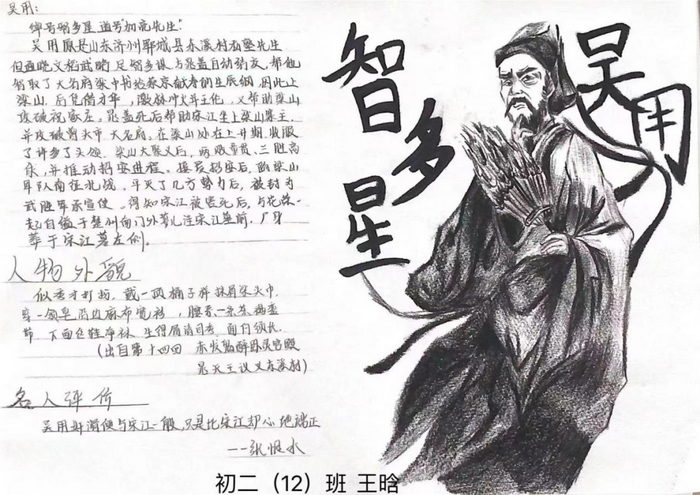 吴用:
绰号智多星 道号"加亮先生".
吴用原是山东济州郓城县东溪村私塾先生
但通晓文韬武略, 足智多谋, 与晁盖自幼结交, 帮他
智取了大名府梁中书给蔡京献寿的生辰纲, 因此上
梁山. 后
攻破祝家庄, 晁盖死后帮助宋江坐上梁山寨主,
并攻破曾头市, 大名府, 在梁山处在上升期, 收服
了许多了头领. 梁山大聚义后, 两赢童贯, 三胜高
俅, 并推动招安进程. 接受招安后, 随梁山
军队南征北战, 平灭了几方势力后, 被封为
武胜军承宣使. 得知宋江被害死后, 与花荣一
起自缢于楚州南门外蓼儿洼宋江坟前, 尸身
葬于宋江墓左侧。
人物外貌
似秀才打扮, 戴一顶桶子样抹眉梁头巾,
穿一领皂沿边麻布宽衫, 腰系一条茶褐銮
带, 下面丝鞋净袜, 生得眉清目秀, 面白须长.
(出自第十四回 赤发鬼醉卧灵官殿
晁天王认义东溪村)
名人评价
吴用奸猾便与宋江一般, 只是比宋江却心地端正
——张恨水
智多星
吴用
初二（12）班 王晗